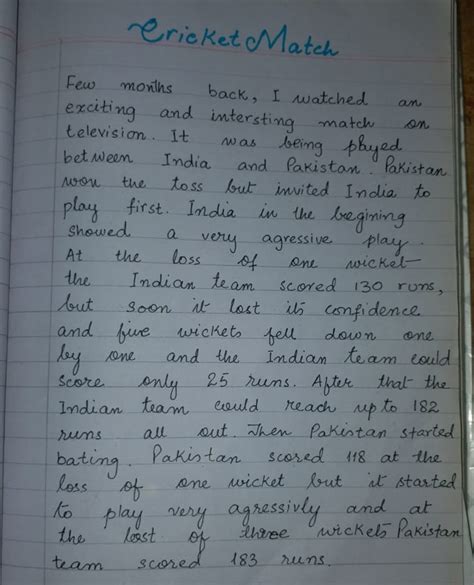 Cricket Match
Few months back, I watched an
exciting and intersting match on
television. It was being played
between India and Pakistan. Pakistan
won the toss but invited India to
play first. India in the begining
showed a very agressive play.
At the loss of one wicket
the Indian team scored 130 runs,
but soon it lost its confidence
and five wickets fell down one
by one and the Indian team could
score only 25 runs. After that the
Indian team could reach up to 182
runs all out. Then Pakistan started
bating. Pakistan scored 118 at the
loss of one wicket but it started
to play very agressivly and at
the lost of three wickets Pakistan
team scored 183 runs.